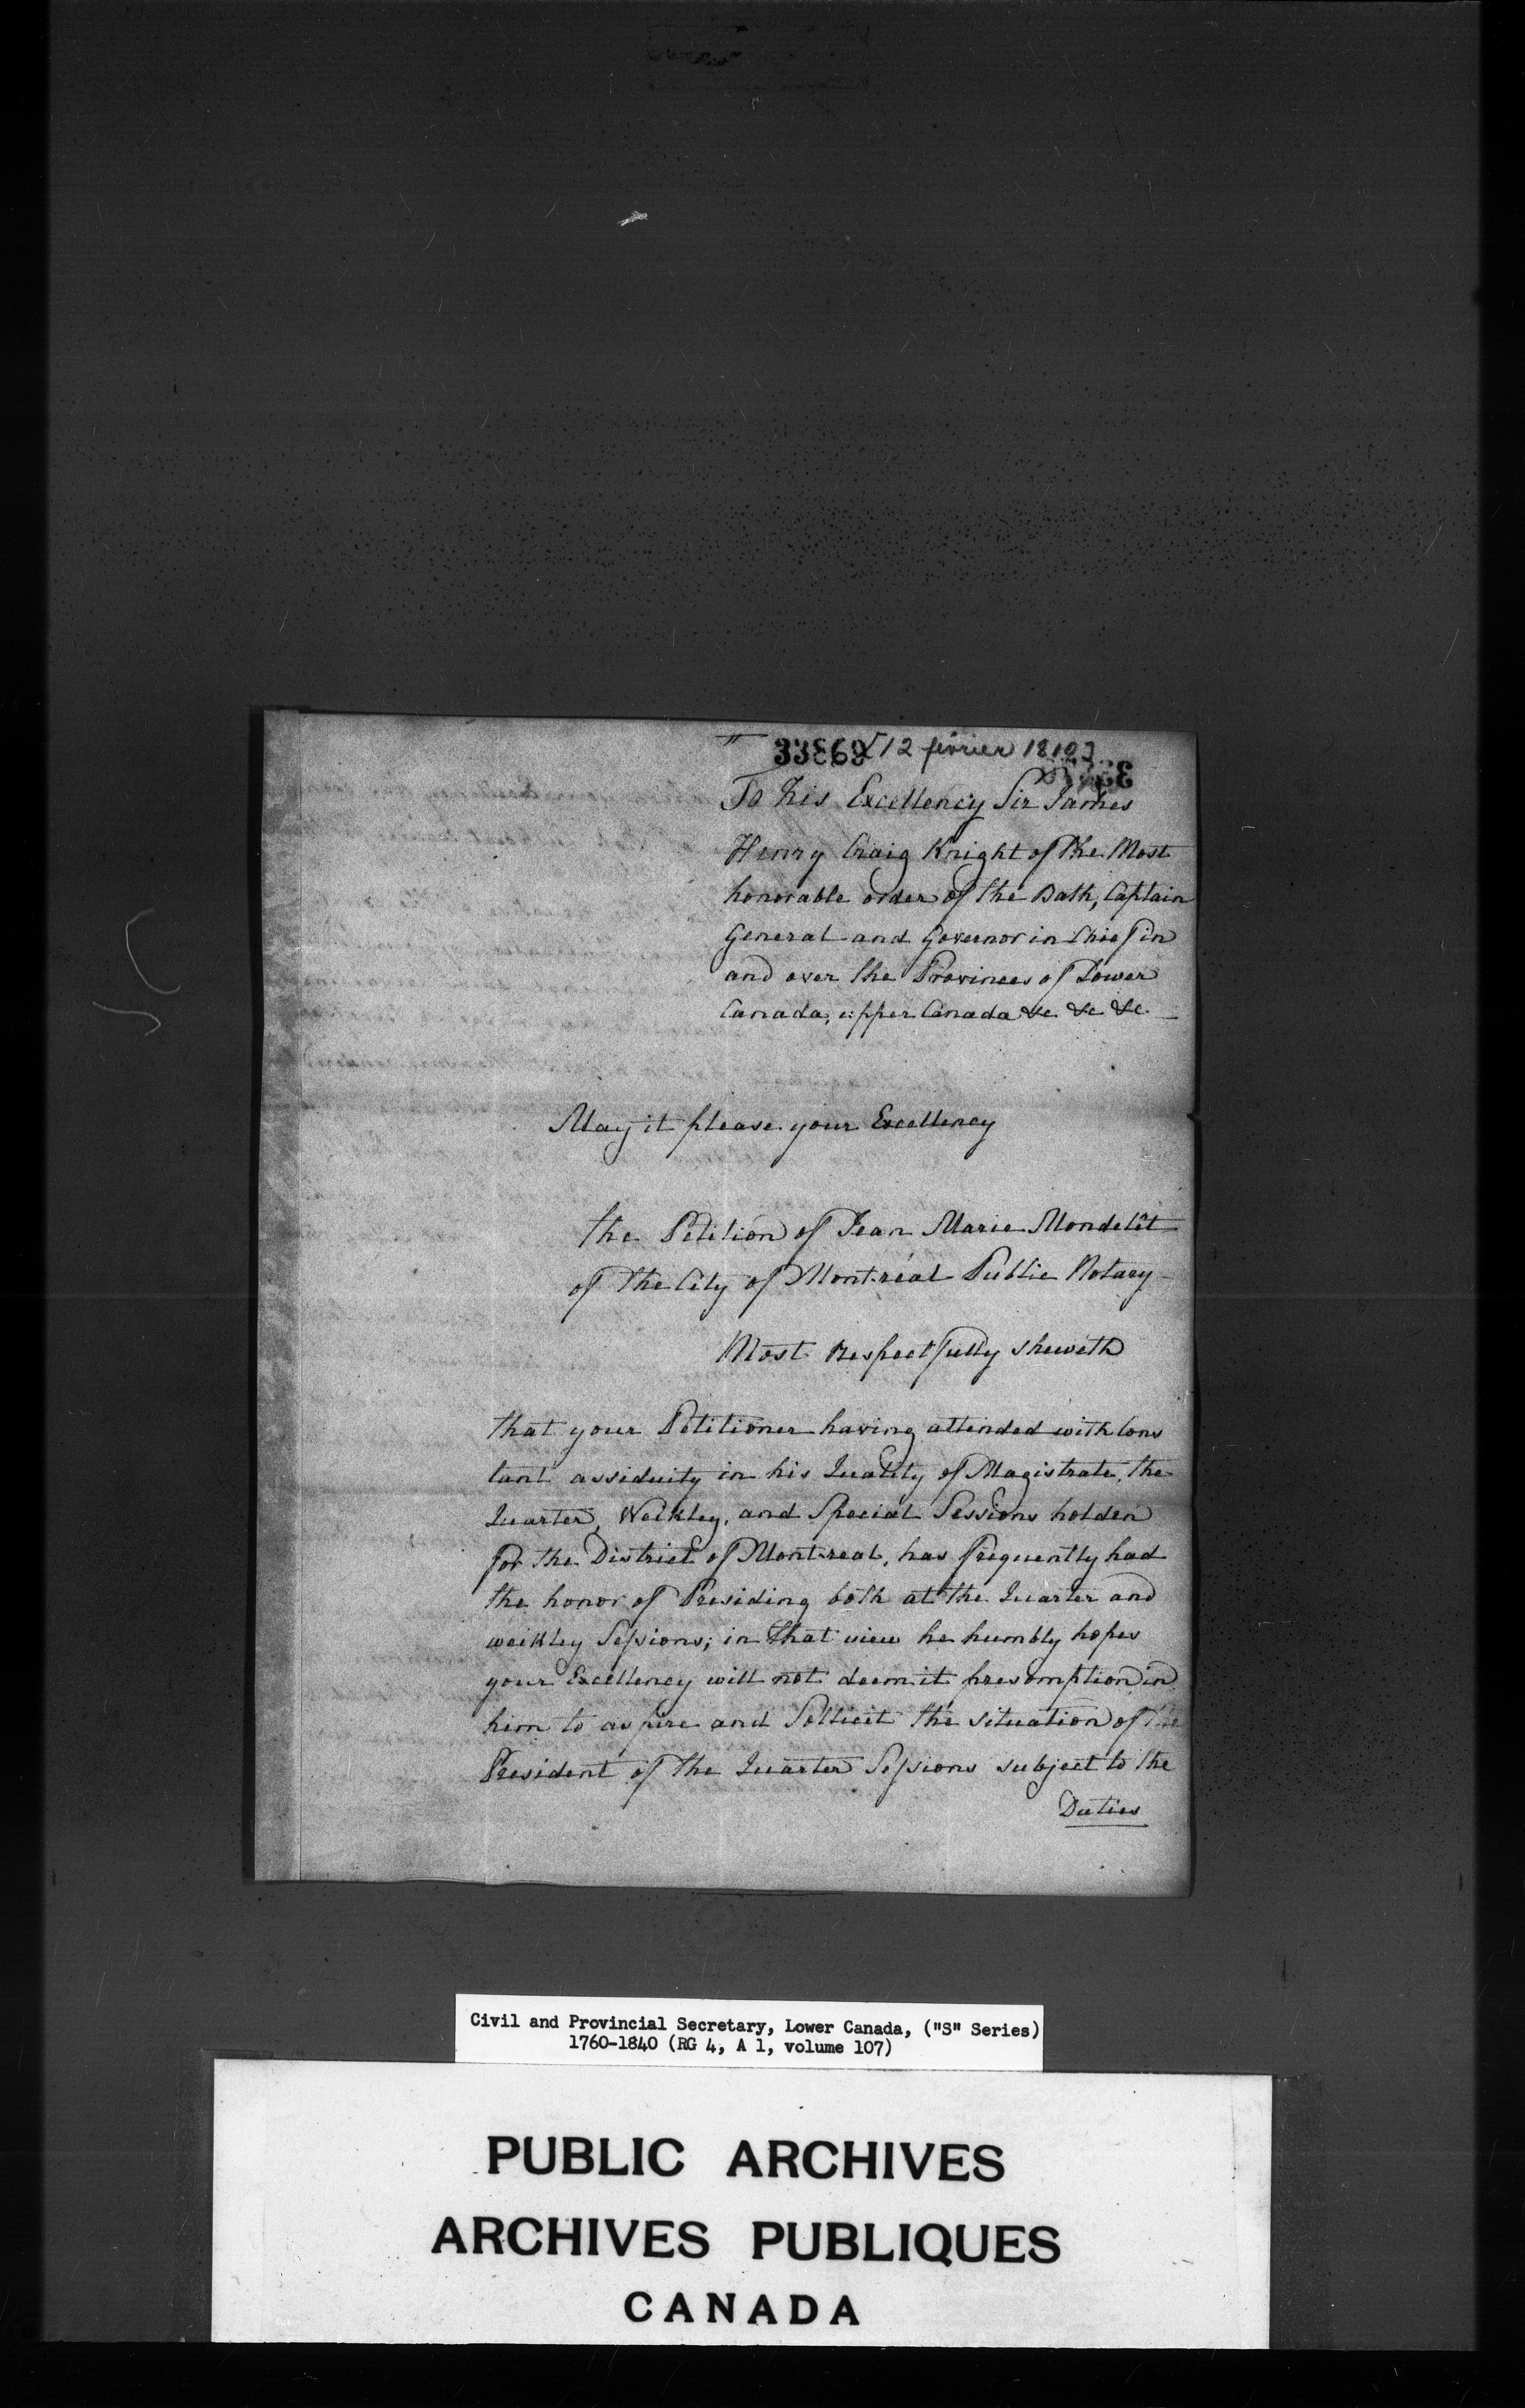 33369 [12 février 1810]
To his Excellency Sir James
Henry Craig Knight of the Most
honorable order of the Bath, Captain
General and Governor in Chief in
and over the Provinces of Lower
Canada, upper Canada &c &c &c
May it please your Excellency
the Petition of Jean Marie Mondelêt
of the City of Montréal Public Notary
Most Respectfully sheweth
that your Petitioner having attended with Cons
tant assiduity in his Quality of Magistrate, the
Quarter, Weekley, and Special Sessions holden
for the District of Montreal, has frequently had
the honor of Presiding both at the Quarter and
weekley Sessions; in that view he humbly hopes
your Excellency will not deem it presomption in
him to aspire and Sollicit the situation of the
President of the Quarter Sessions subject to the
Duties
Civil and Provincial Secretary, Lower Canada, ("S" Series)
1760-1840 (RG 4, A 1, volume 107)
PUBLIC ARCHIVES
ARCHIVES PUBLIQUES
CANADA